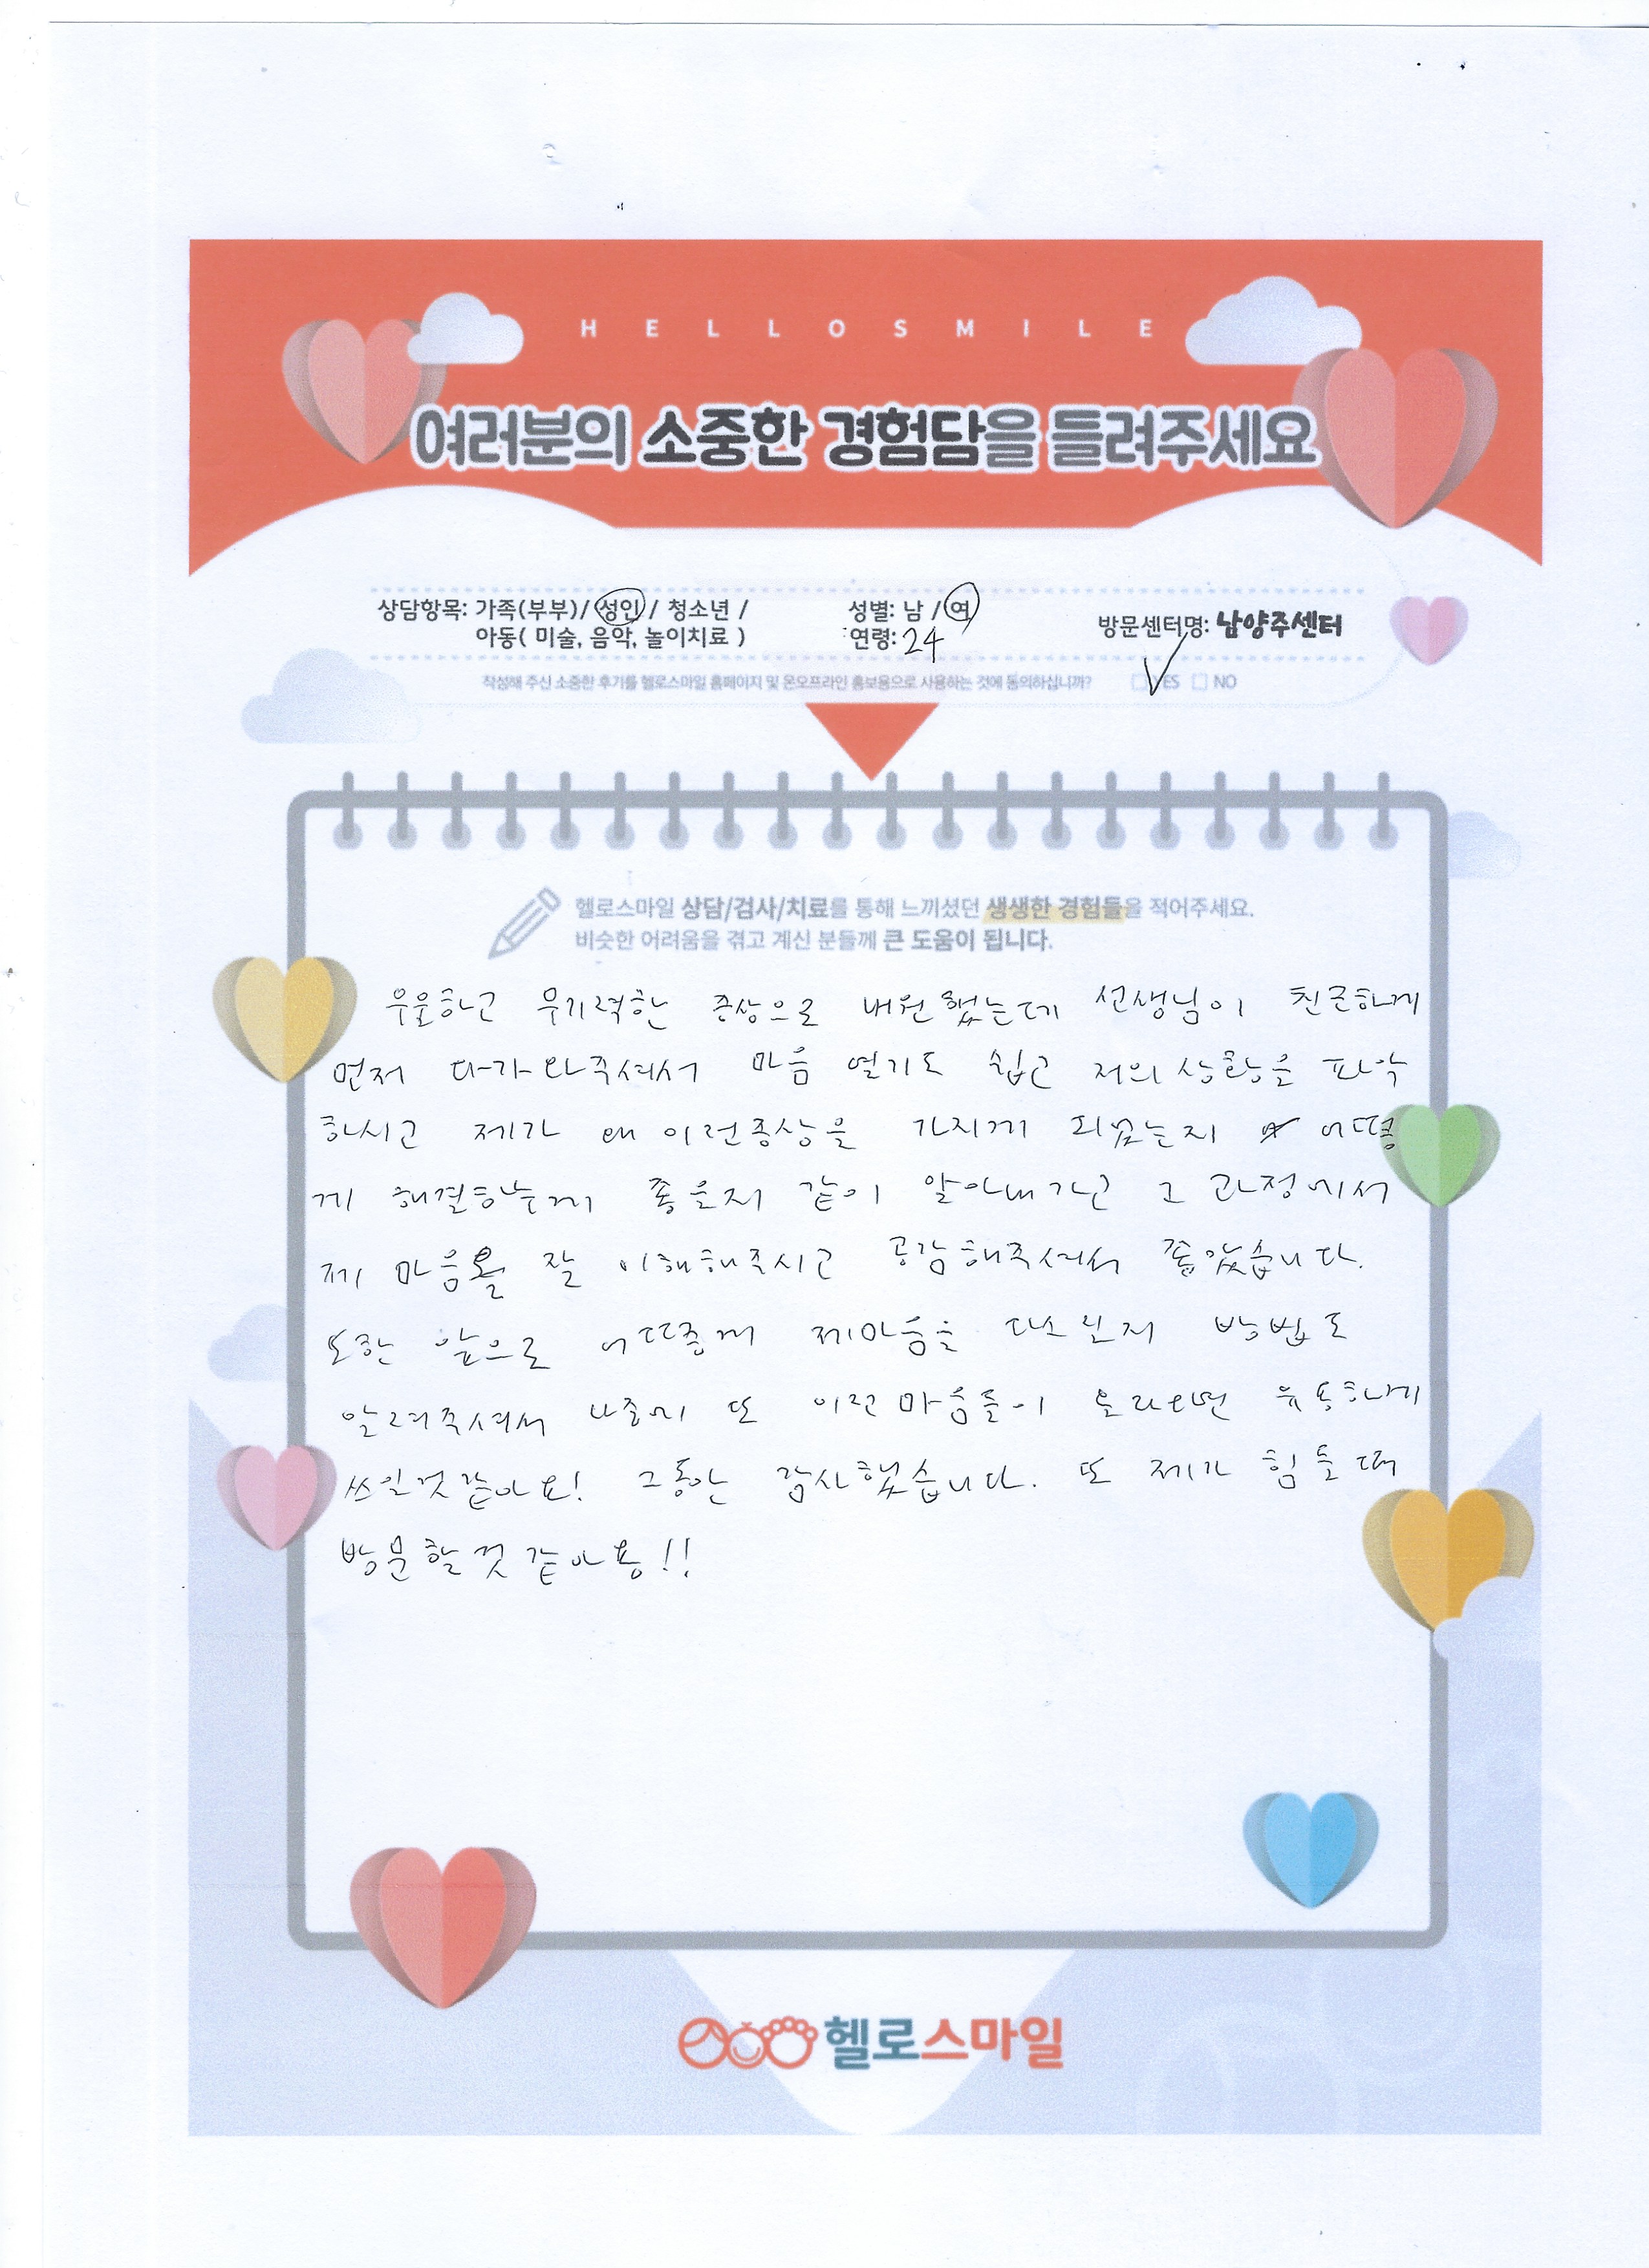 HELLOSMILE
여러분의 소중한 경험담을 들려주세요
상담항목: 가족(부부)/ 성인 / 청소년 /
아동( 미술, 음악, 놀이치료 )
성별: 남 / 여
연령: 24
방문센터명: 남양주센터
작성해 주신 소중한 후기를 헬로스마일 홈페이지 및 온오프라인 홍보용으로 사용하는 것에 동의하십니까? YES NO
헬로스마일 상담/검사/치료를 통해 느끼셨던 생생한 경험들을 적어주세요.
비슷한 어려움을 겪고 계신 분들께 큰 도움이 됩니다.
우울하고 무기력한 증상으로 내원했는데 선생님이 친근하게
먼저 다가와주셔서 마음 열기도 쉽고 저의 상황을 파악
하시고 제가 왜 이런증상을 가지게 되었는지 어떻
게 해결하는게 좋을지 같이 알아내가고 그 과정에서
제 마음을 잘 이해해주시고 공감해주셔서 좋았습니다.
또한 앞으로 어떻게 제마음을 다스릴지 방법도
알려주셔서 나중에 또 이런마음들이 올라오면 유용하게
쓰일것같아요! 그동안 감사했습니다. 또 제가 힘들때
방문할것 같아용!!
헬로스마일